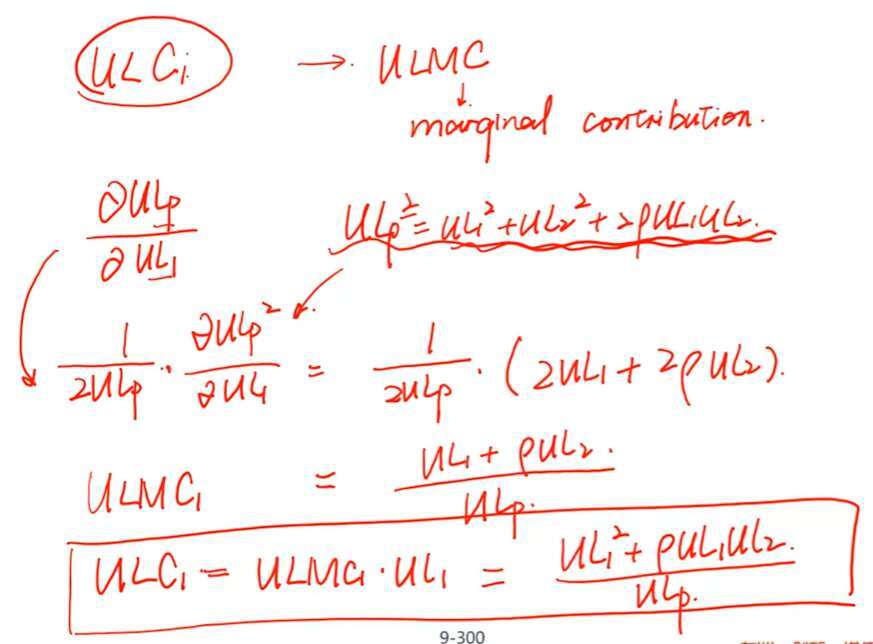 ULCi → ULMC
↓
marginal contribution.
∂ULp / ∂UL1
ULp² = UL1² + UL2² + 2ρUL1UL2.
1 / 2ULp · ∂ULp² / ∂UL1 = 1 / 2ULp · (2UL1 + 2ρUL2).
ULMC1 = UL1 + ρUL2. / ULp.
ULC1 = ULMC1 · UL1 = UL1² + ρUL1UL2. / ULp.
9-300